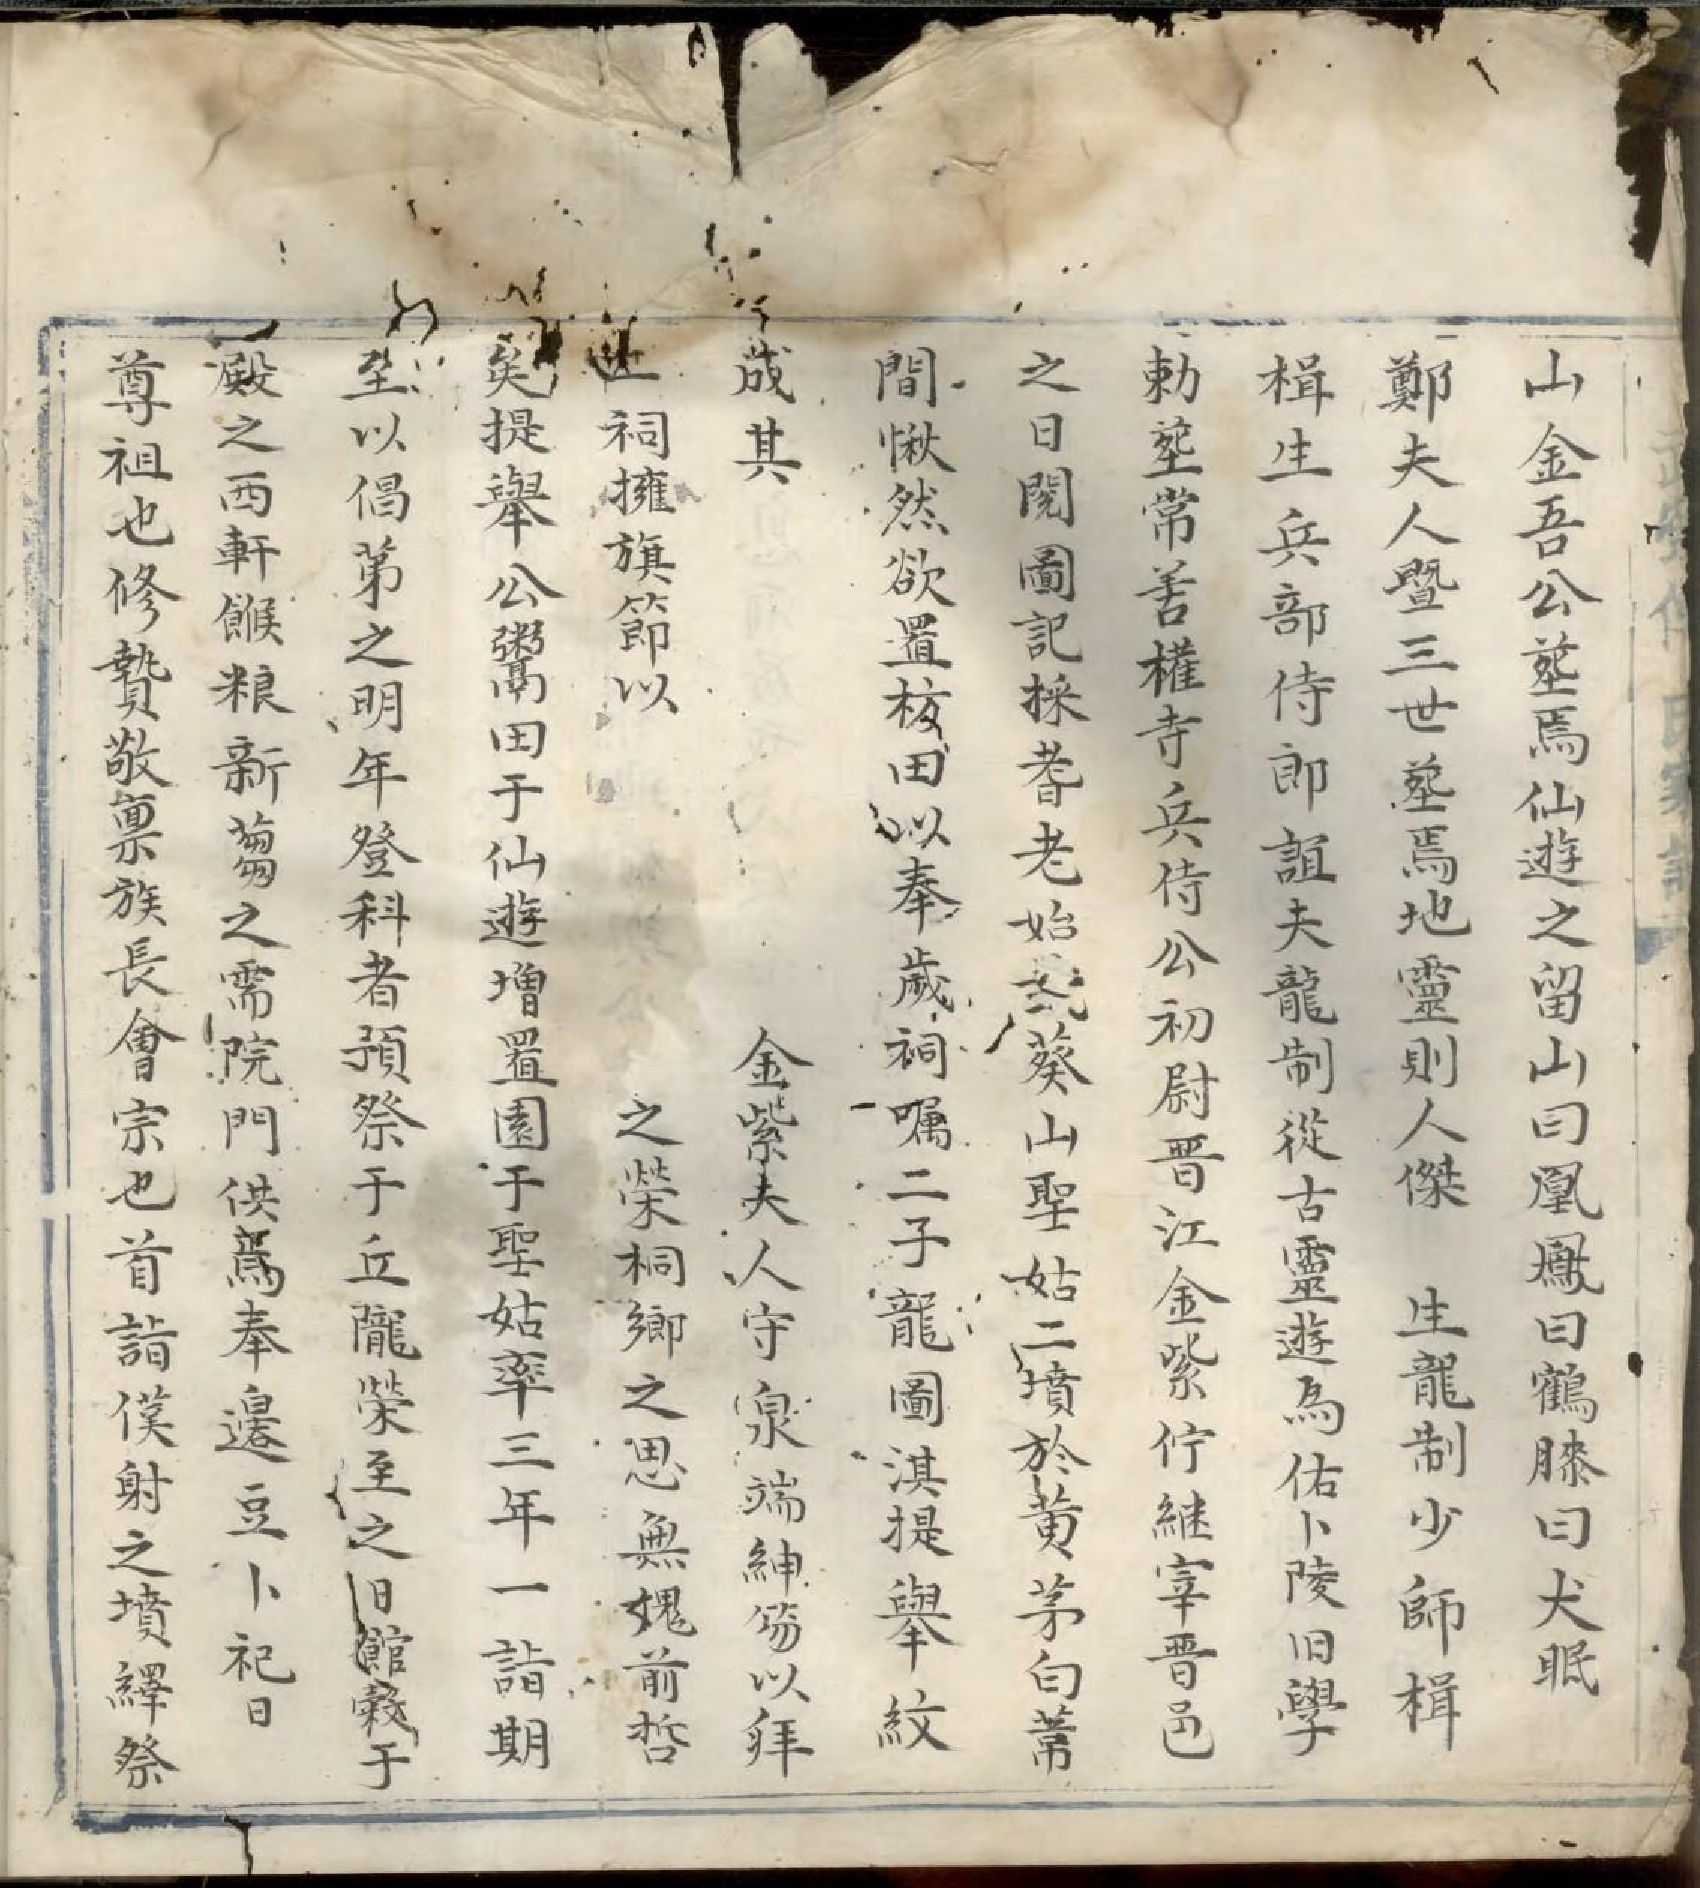 山金吾公塟焉仙遊之留山曰凰鳳曰鶴膝曰犬眠
鄭夫人暨三世塟焉地靈則人傑 生龍制少師楫
楫生兵部侍郎誼夫龍制從古靈遊為佑卜陵旧學
勅塟常善權寺兵侍公初尉晋江金紫佇継宰晋邑
之日閱圖記採耆老始葵山聖姑二墳於黄茅白葦
間愀然欲置枝田以奉歲祠嘱二子龍圖淇提舉紋
成其 金紫夫人守泉端紳笏以拜
祠擁旗節以 之榮桐鄉之思無媿前哲
矣提舉公鬻田于仙遊增置園于聖姑率三年一詣期
至以倡苐之明年登科者預祭于丘隴榮至之旧館穀于
殿之西軒餱粮新蒭之需院門供焉奉邊豆卜祀日
尊祖也修贄敬禀族長會宗也首詣僕射之墳繹祭